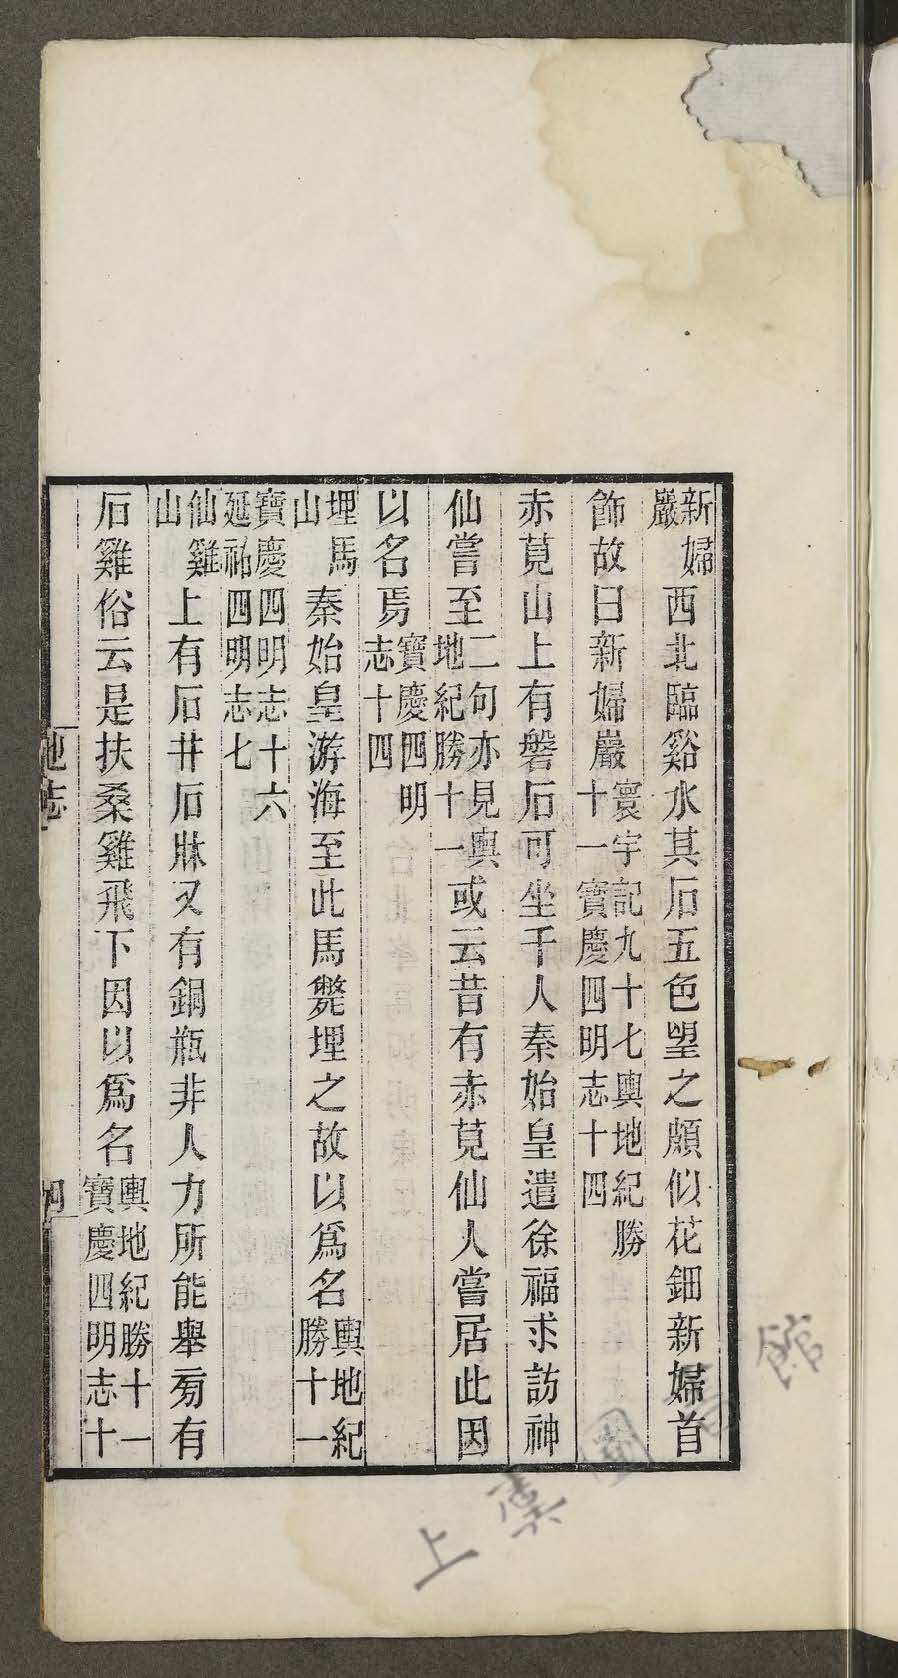 新婦巖西北臨谿水其石五色望之頗似花鈿新婦首
飾故曰新婦巖寰宇記九十七輿地紀勝十一寶慶四明志十四
赤莧山上有磐石可坐千人秦始皇遣徐福求訪神
仙嘗至二句亦見輿地紀勝十一或云昔有赤莧仙人嘗居此因
以名焉寶慶四明志十四
埋馬山秦始皇游海至此馬斃埋之故以爲名輿地紀勝十一
寶慶四明志十六延祐四明志七
仙雞山上有石井石牀又有銅瓶非人力所能舉旁有
石雞俗云是扶桑雞飛下因以爲名輿地紀勝十一寶慶四明志十
地志
四
上虞圖書館